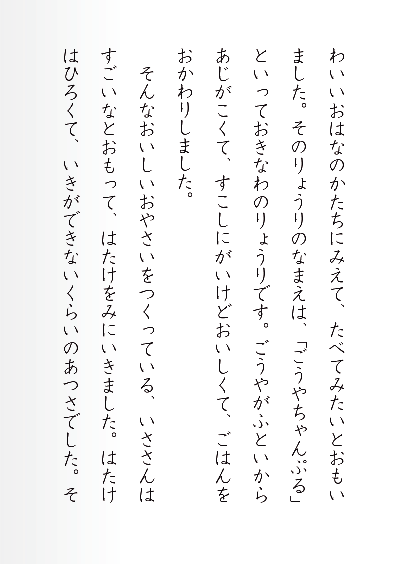 わいいおはなのかたちにみえて、たべてみたいとおもい
ました。そのりょうりのなまえは、「ごうやちゃんぷる」
といっておきなわのりょうりです。ごうやがふといから
あじがこくて、すこしにがいけどおいしくて、ごはんを
おかわりしました。
　そんなおいしいおやさいをつくっている、いささんは
すごいなとおもって、はたけをみにいきました。はたけ
はひろくて、いきができないくらいのあつさでした。そ